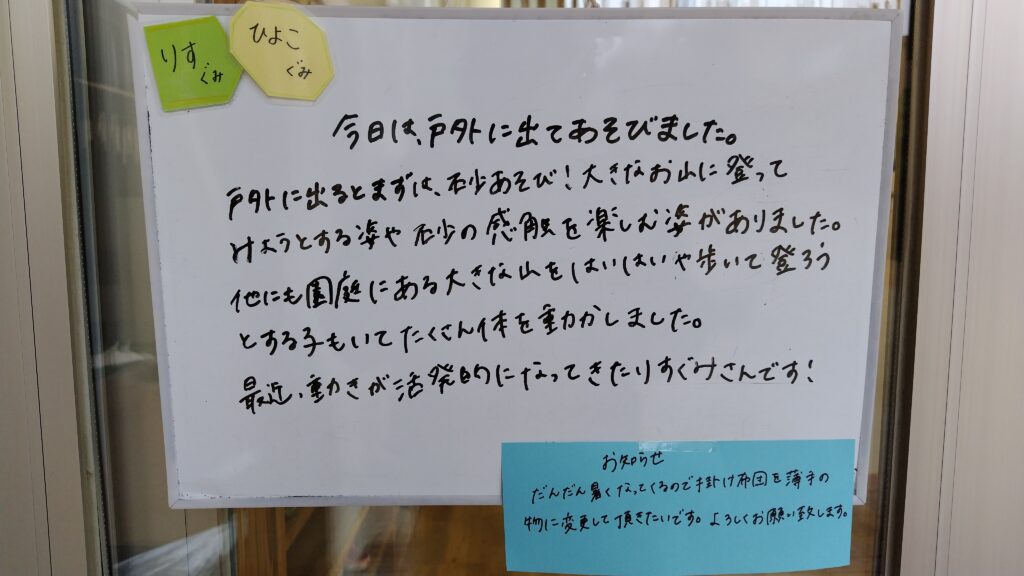 りす
ぐみ
ひよこ
ぐみ
今日は、戸外に出てあそびました。
戸外に出るとまずは、砂あそび！大きなお山に登って
みようとする姿や砂の感触を楽しむ姿がありました。
他にも園庭にある大きな山をはいはいや歩いて登ろう
とする子もいてたくさん体を動かしました。
最近、動きが活発的になってきたりすぐみさんです！
お知らせ
だんだん暑くなってくるので掛け布団を薄手の
物に変更して頂きたいです。よろしくお願い致します。